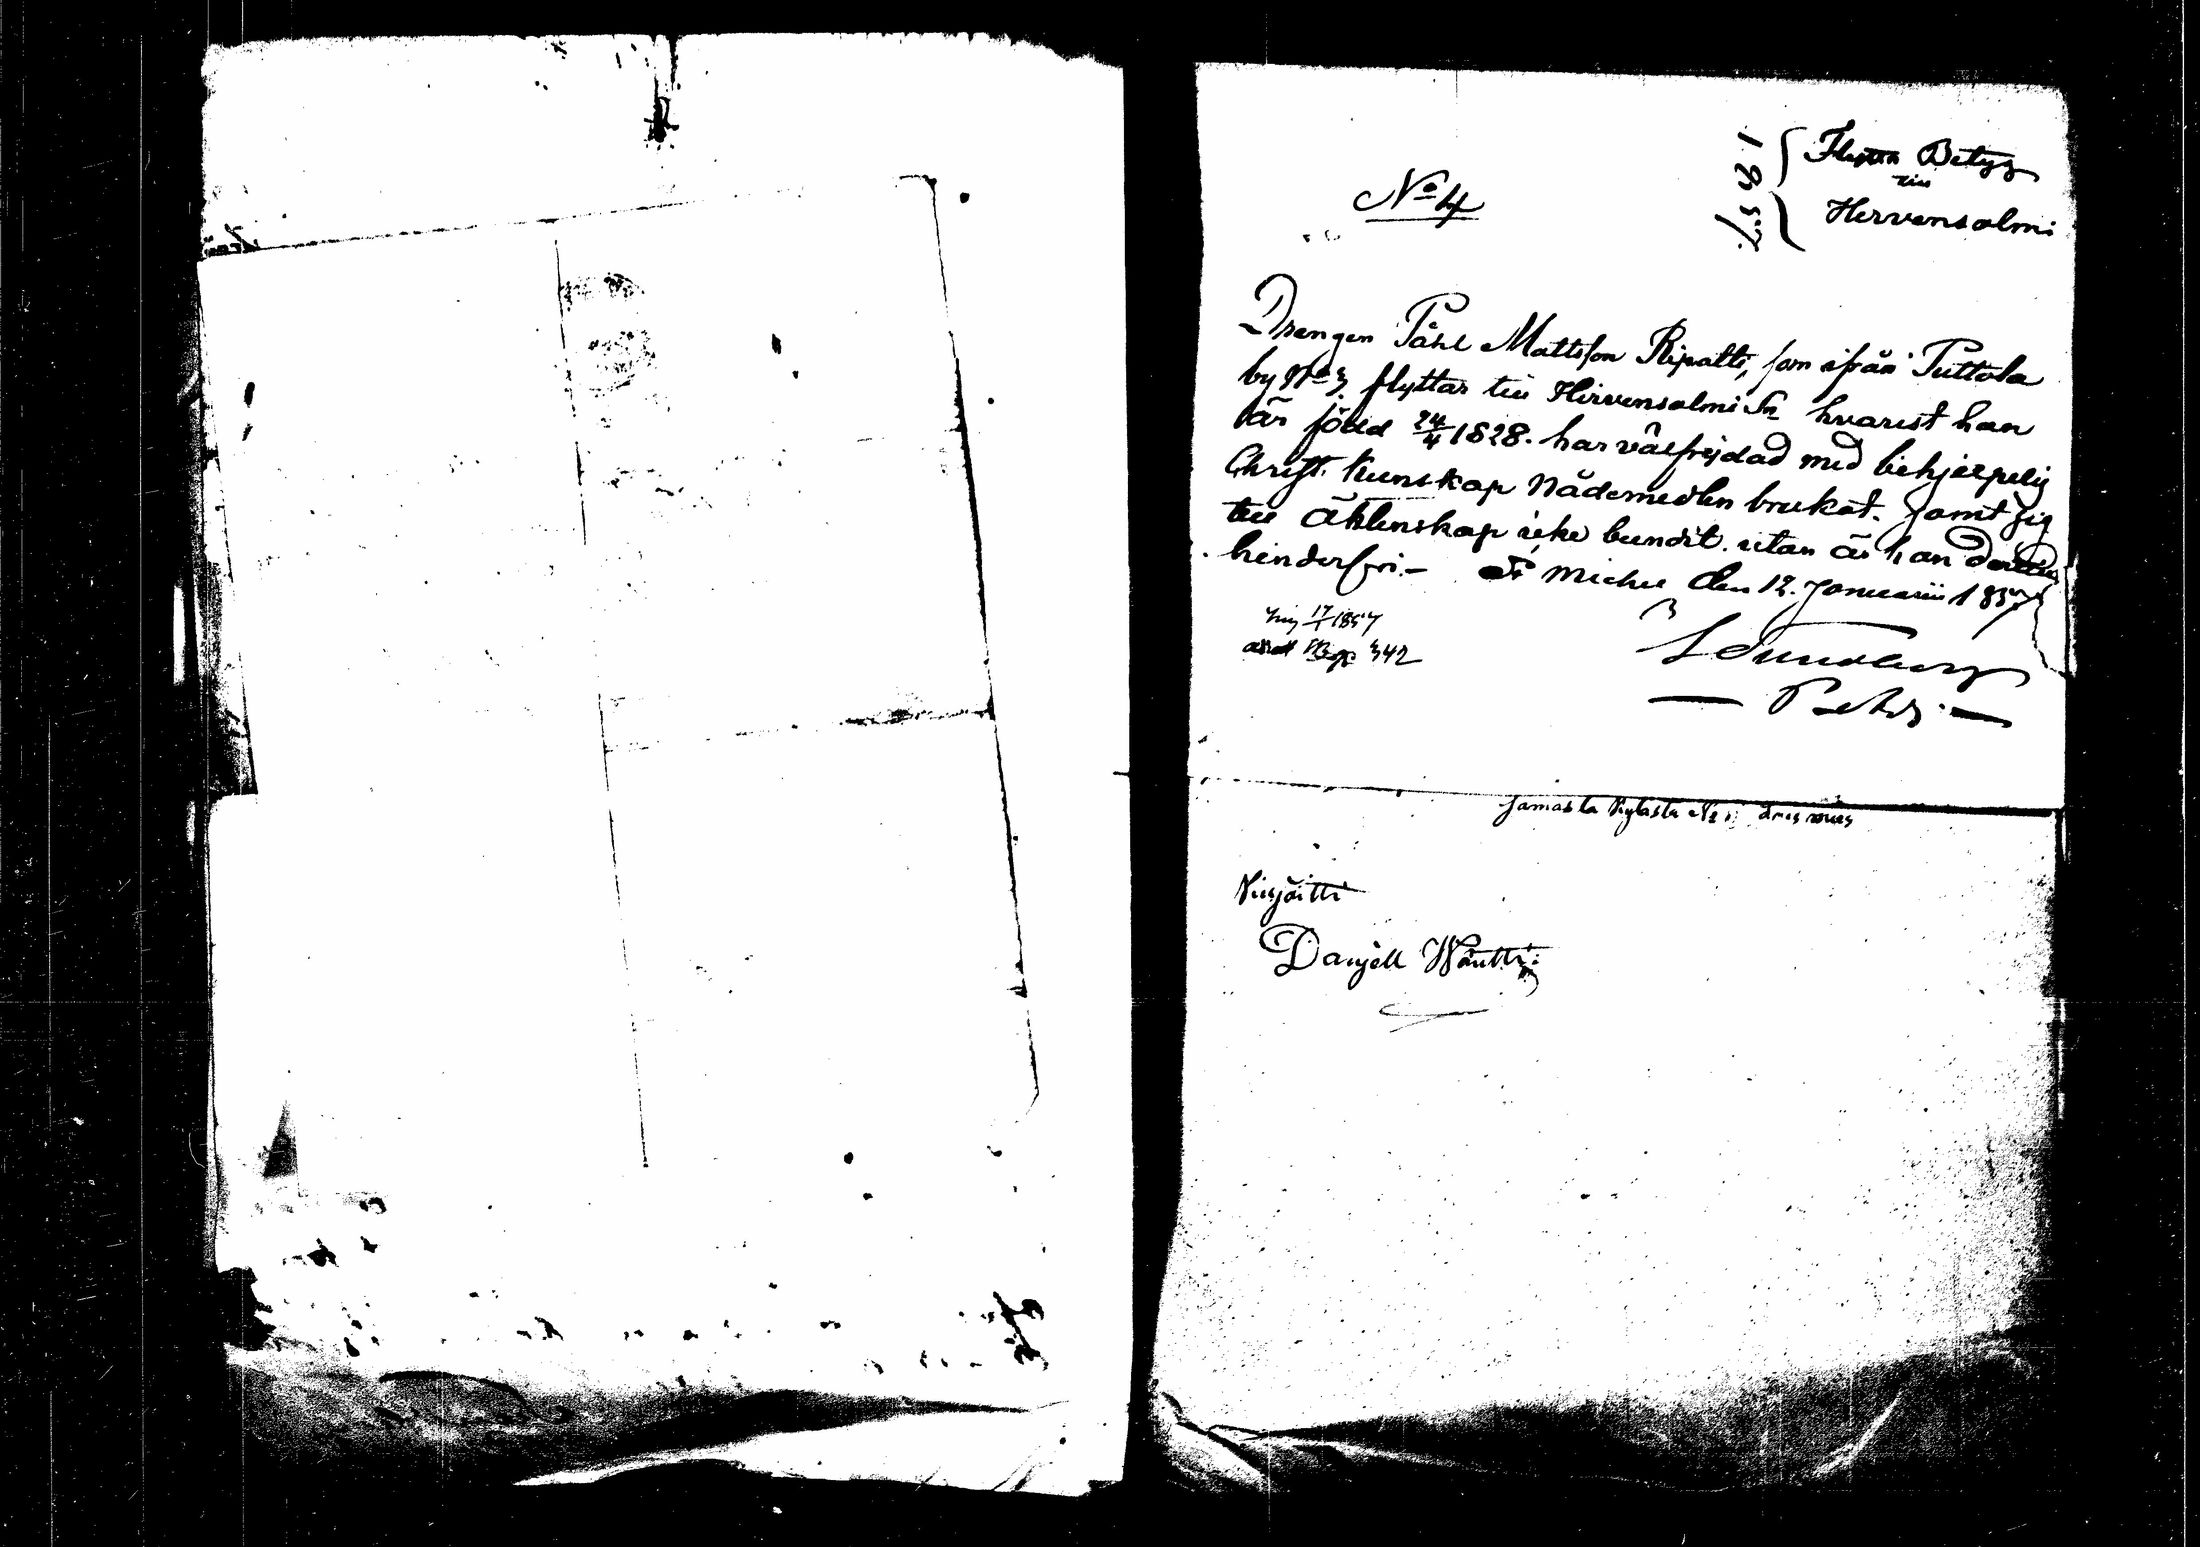 No 4
1857.
Flyttn Betyg
till
Hirvensalmi
Drengen Påhl Mattsson Ripatti, som ifrån Tuttola
by No 3 flyttar till Hirvensalmi Sn hvarest han
är född 24/4 1828. har välfrejdad med behjelpelig
Christ. Kunskap Nådemedlen brukat. samt sig
till äktenskap icke bundit. utan är han dertill
hinderfri.— St Michel den 12. Januarii 1857
17/1 1857
342
samasta Kylästä No
Kirjoitti
Danjell Wäntti